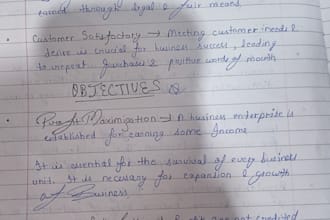 earned through legal & fair means.
Customer Satisfactory → Meeting customer needs &
desire is crucial for business success, leading
to repeat purchases & positive words of mouth
OBJECTIVES
Profit Maximisation → A business enterprise is
established for earning some Income
It is essential for the survival of every business
unit. It is necessary for expansion & growth
of Business
not credited